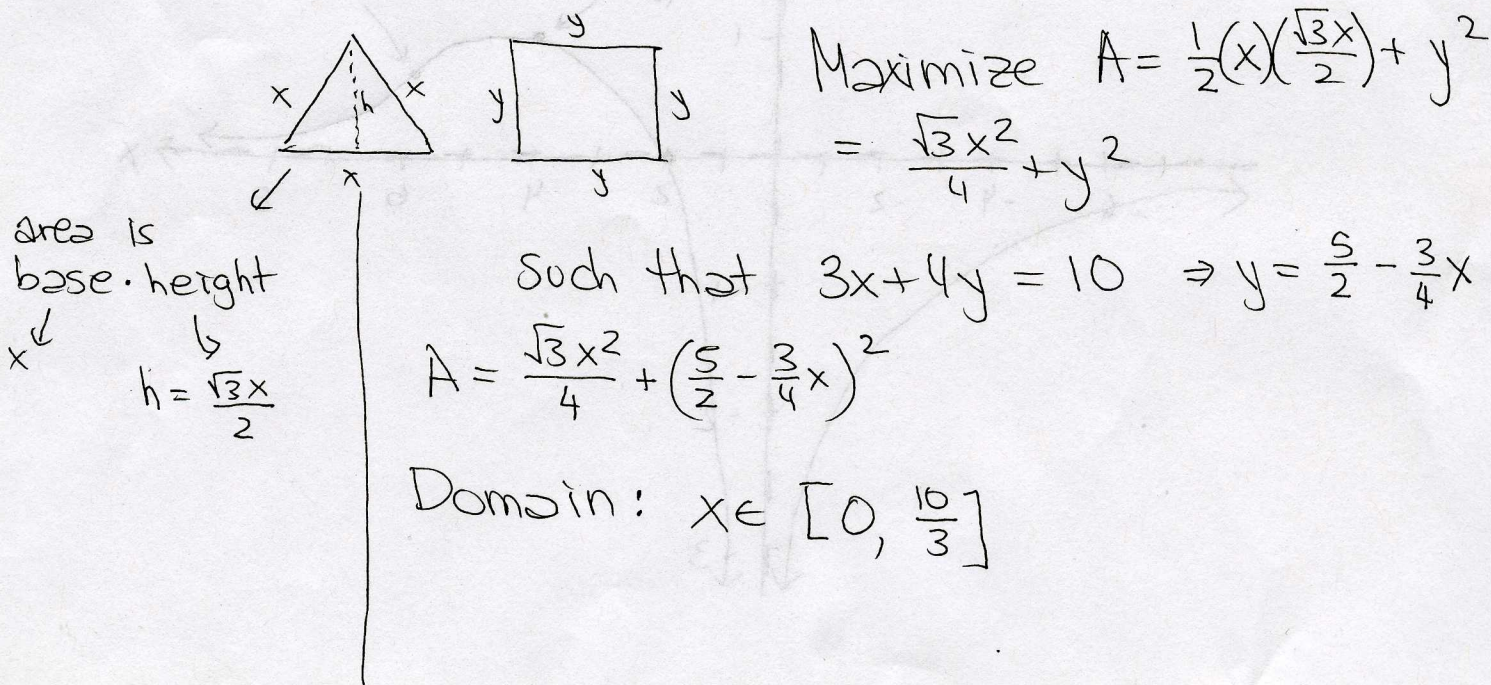 x
h
x
x
y
y
y
y
area is
base · height
x
h = √3x/2
Maximize A = 1/2(x)(√3x/2) + y²
= √3x²/4 + y²
Such that 3x+4y = 10 ⇒ y = 5/2 - 3/4x
A = √3x²/4 + (5/2 - 3/4x)²
Domain: x∈ [0, 10/3]